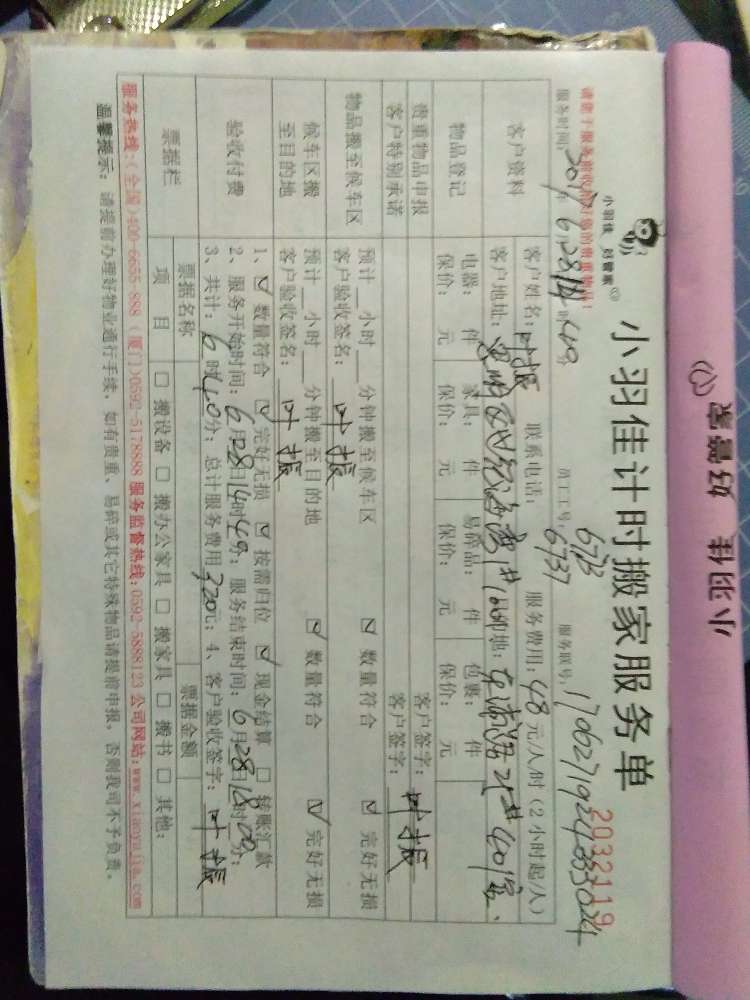 小羽佳 好管家
小羽佳 好管家
小羽佳计时搬家服务单
2032119
服务时间: 2017年6月28日14时49分 员工工号: 6713 6737 服务联号:
客户资料
客户姓名: 叶振 联系电话: 服务费用: 48元/人/时(2小时起/人)
客户地址: 目的地:
物品登记
电器: 件 家具: 件 易碎品: 件 包裹: 件
保价: 元 保价: 元 保价: 元 保价: 元
贵重物品申报 客户签字:
客户特别承诺 客户签字: 叶振
物品搬至候车区
预计__小时__分钟搬至候车区 ☑ 数量符合 ☑ 完好无损
客户验收签名: 叶振
候车区搬至目的地
预计__小时__分钟搬至目的地 ☑ 数量符合 ☑ 完好无损
客户验收签名: 叶振
验收付费
1、☑ 数量符合 ☑ 完好无损 ☑ 按需归位 ☑ 现金结算 ☐ 转账汇款
2、服务开始时间: 6月28日14时49分; 服务结束时间: 6月28日18时00分;
3、共计: 6时40分; 总计服务费用320元; 4、客户验收签字: 叶振
票据栏
票据名称 票据金额
项目 ☐ 搬设备 ☐ 搬办公家具 ☐ 搬家具 ☐ 搬书 ☐ 其他:
服务热线:(全国)400-6655-888 (厦门)0592-5178888 服务监督热线:0592-5888123 公司网站:www.xiaoyujia.com
温馨提示: 请提前办理好物业通行手续, 如有贵重、易碎或其它特殊物品请提前申报, 否则我司不予负责。